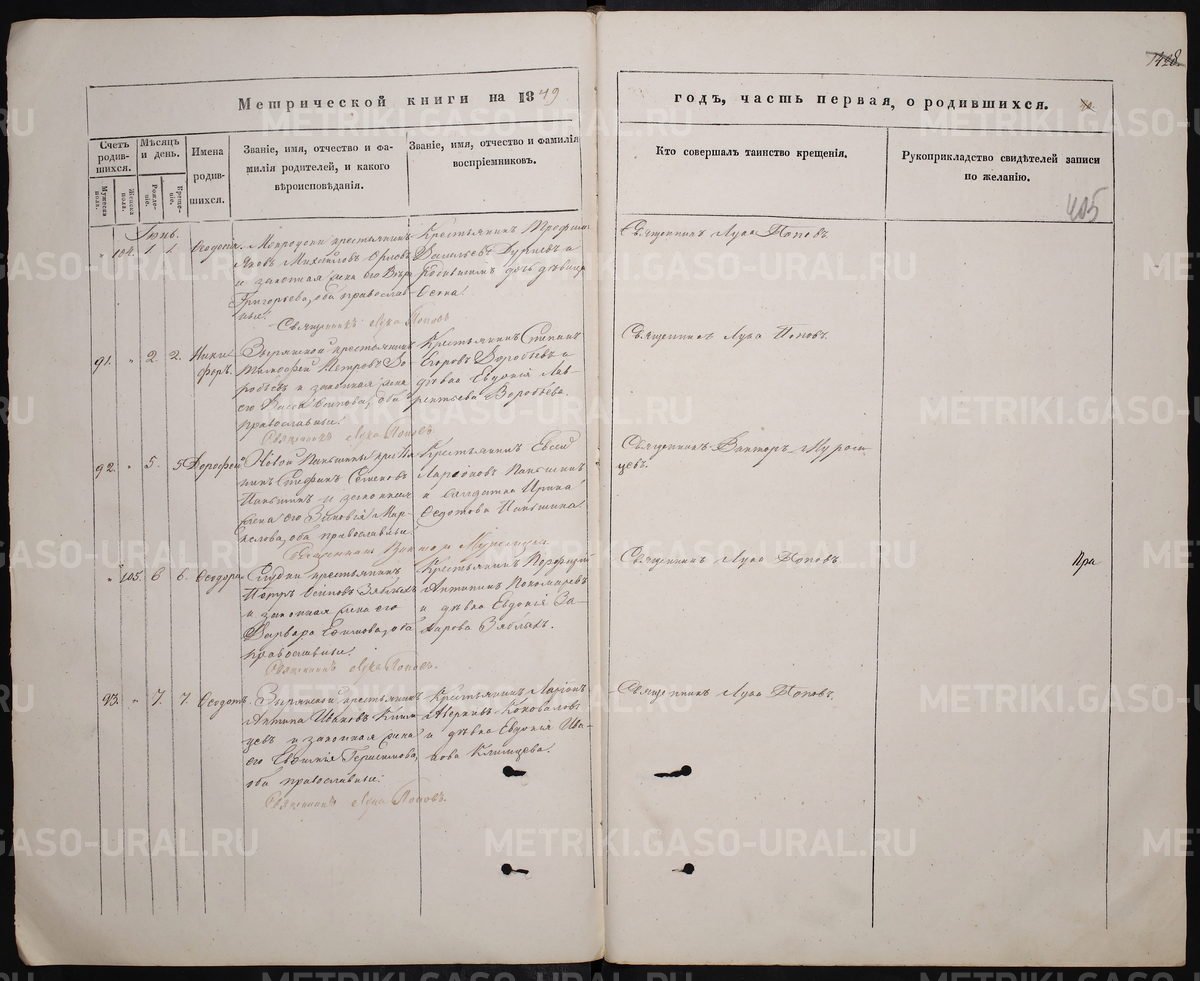 1428.
Метрической книги на 1849
годъ, часть первая, о родившихся.
405
Счетъ родив-шихся.
Мужеска полъ.
Женска полъ.
Мѣсяцъ и день.
Рожде-нія.
Креще-нія.
Имена родив-шихся.
Званіе, имя, отчество и фа-
милія родителей, и какого
вѣроисповѣданія.
Званіе, имя, отчество и фамилія
воспріемниковъ.
Кто совершалъ таинство крещенія.
Рукоприкладство свидѣтелей записи
по желанію.
Іюнь.
" 104. 1 1. Ѳеодосія.
крестьянинъ
Яковъ Михайловъ Орловъ
и законная жена его Вѣра
Григорьева, оба православ-
ные.
Священникъ Лука Поповъ
Крестьянинъ Трофимъ
Васильевъ и
дочь дѣвица
Священникъ Лука Поповъ.
91. " 2. 2. Ники-
форъ.
Зырянской крестьянинъ
Тимофей Петровъ Во-
робьевъ и законная жена
его Васса Осипова, оба
православные.
Священникъ Лука Поповъ.
Крестьянинъ Степанъ
Егоровъ Воробьевъ и
дѣвка Евдокія Лав-
рентьева Воробьева.
Священникъ Лука Поповъ.
92. " 5. 5. Дорофей
Новой Паньшины крестья-
нинъ Стефанъ Семеновъ
Паньшинъ и законная
жена его Зиновія Мар-
келова, оба православные.
Священникъ Викторъ
Крестьянинъ Евсей
Ларіоновъ Паньшинъ
и солдатка Ирина
Ѳедотова Паньшина.
Священникъ Викторъ
цевъ.
" 105. 6 6. Ѳеодора.
крестьянинъ
Петръ Осиповъ Зябликъ
и законная жена его
Варвара Ефимова, оба
православные.
Священникъ Лука Поповъ.
Крестьянинъ Порфирій
Антипинъ Пономаревъ
и дѣвка Евдокія За-
харова Зябликъ.
Священникъ Лука Поповъ.
Пра
93. " 7. 7. Ѳеодотъ.
Зырянской крестьянинъ
Антипа Ивановъ Клим-
цевъ и законная жена
его Евфимія Герасимова,
оба православные.
Священникъ Лука Поповъ.
Крестьянинъ Ларіонъ
Аверкіевъ Коноваловъ
и дѣвка Евдокія Ива-
нова Климцева.
Священникъ Лука Поповъ.
METRIKI.GASO-URAL.RU